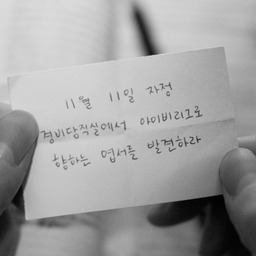 11월 11일 자정
경비당직실에서 아이비리그로
향하는 엽서를 발견하라